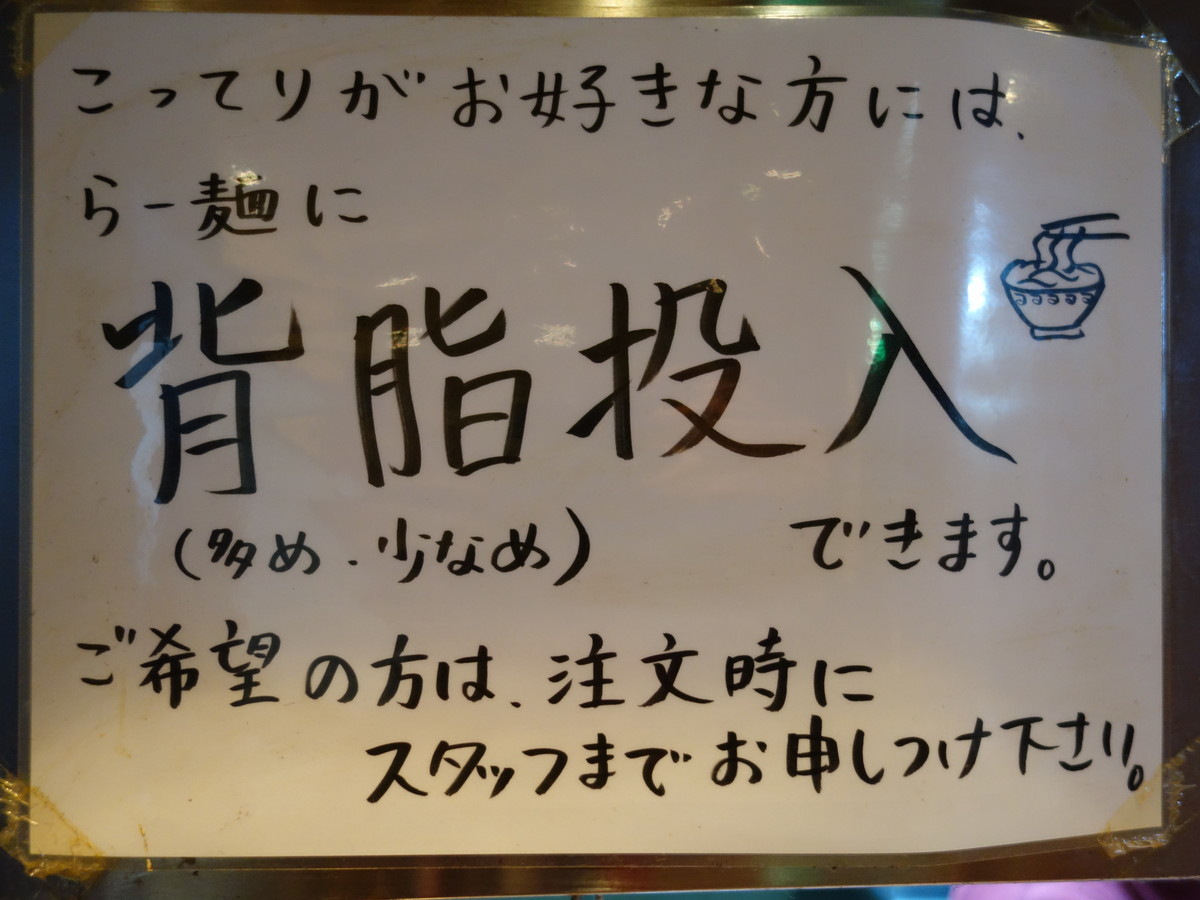 こってりがお好きな方には、
らー麺に
背脂投入
(多め・少なめ) できます。
ご希望の方は、注文時に
スタッフまでお申しつけ下さい。